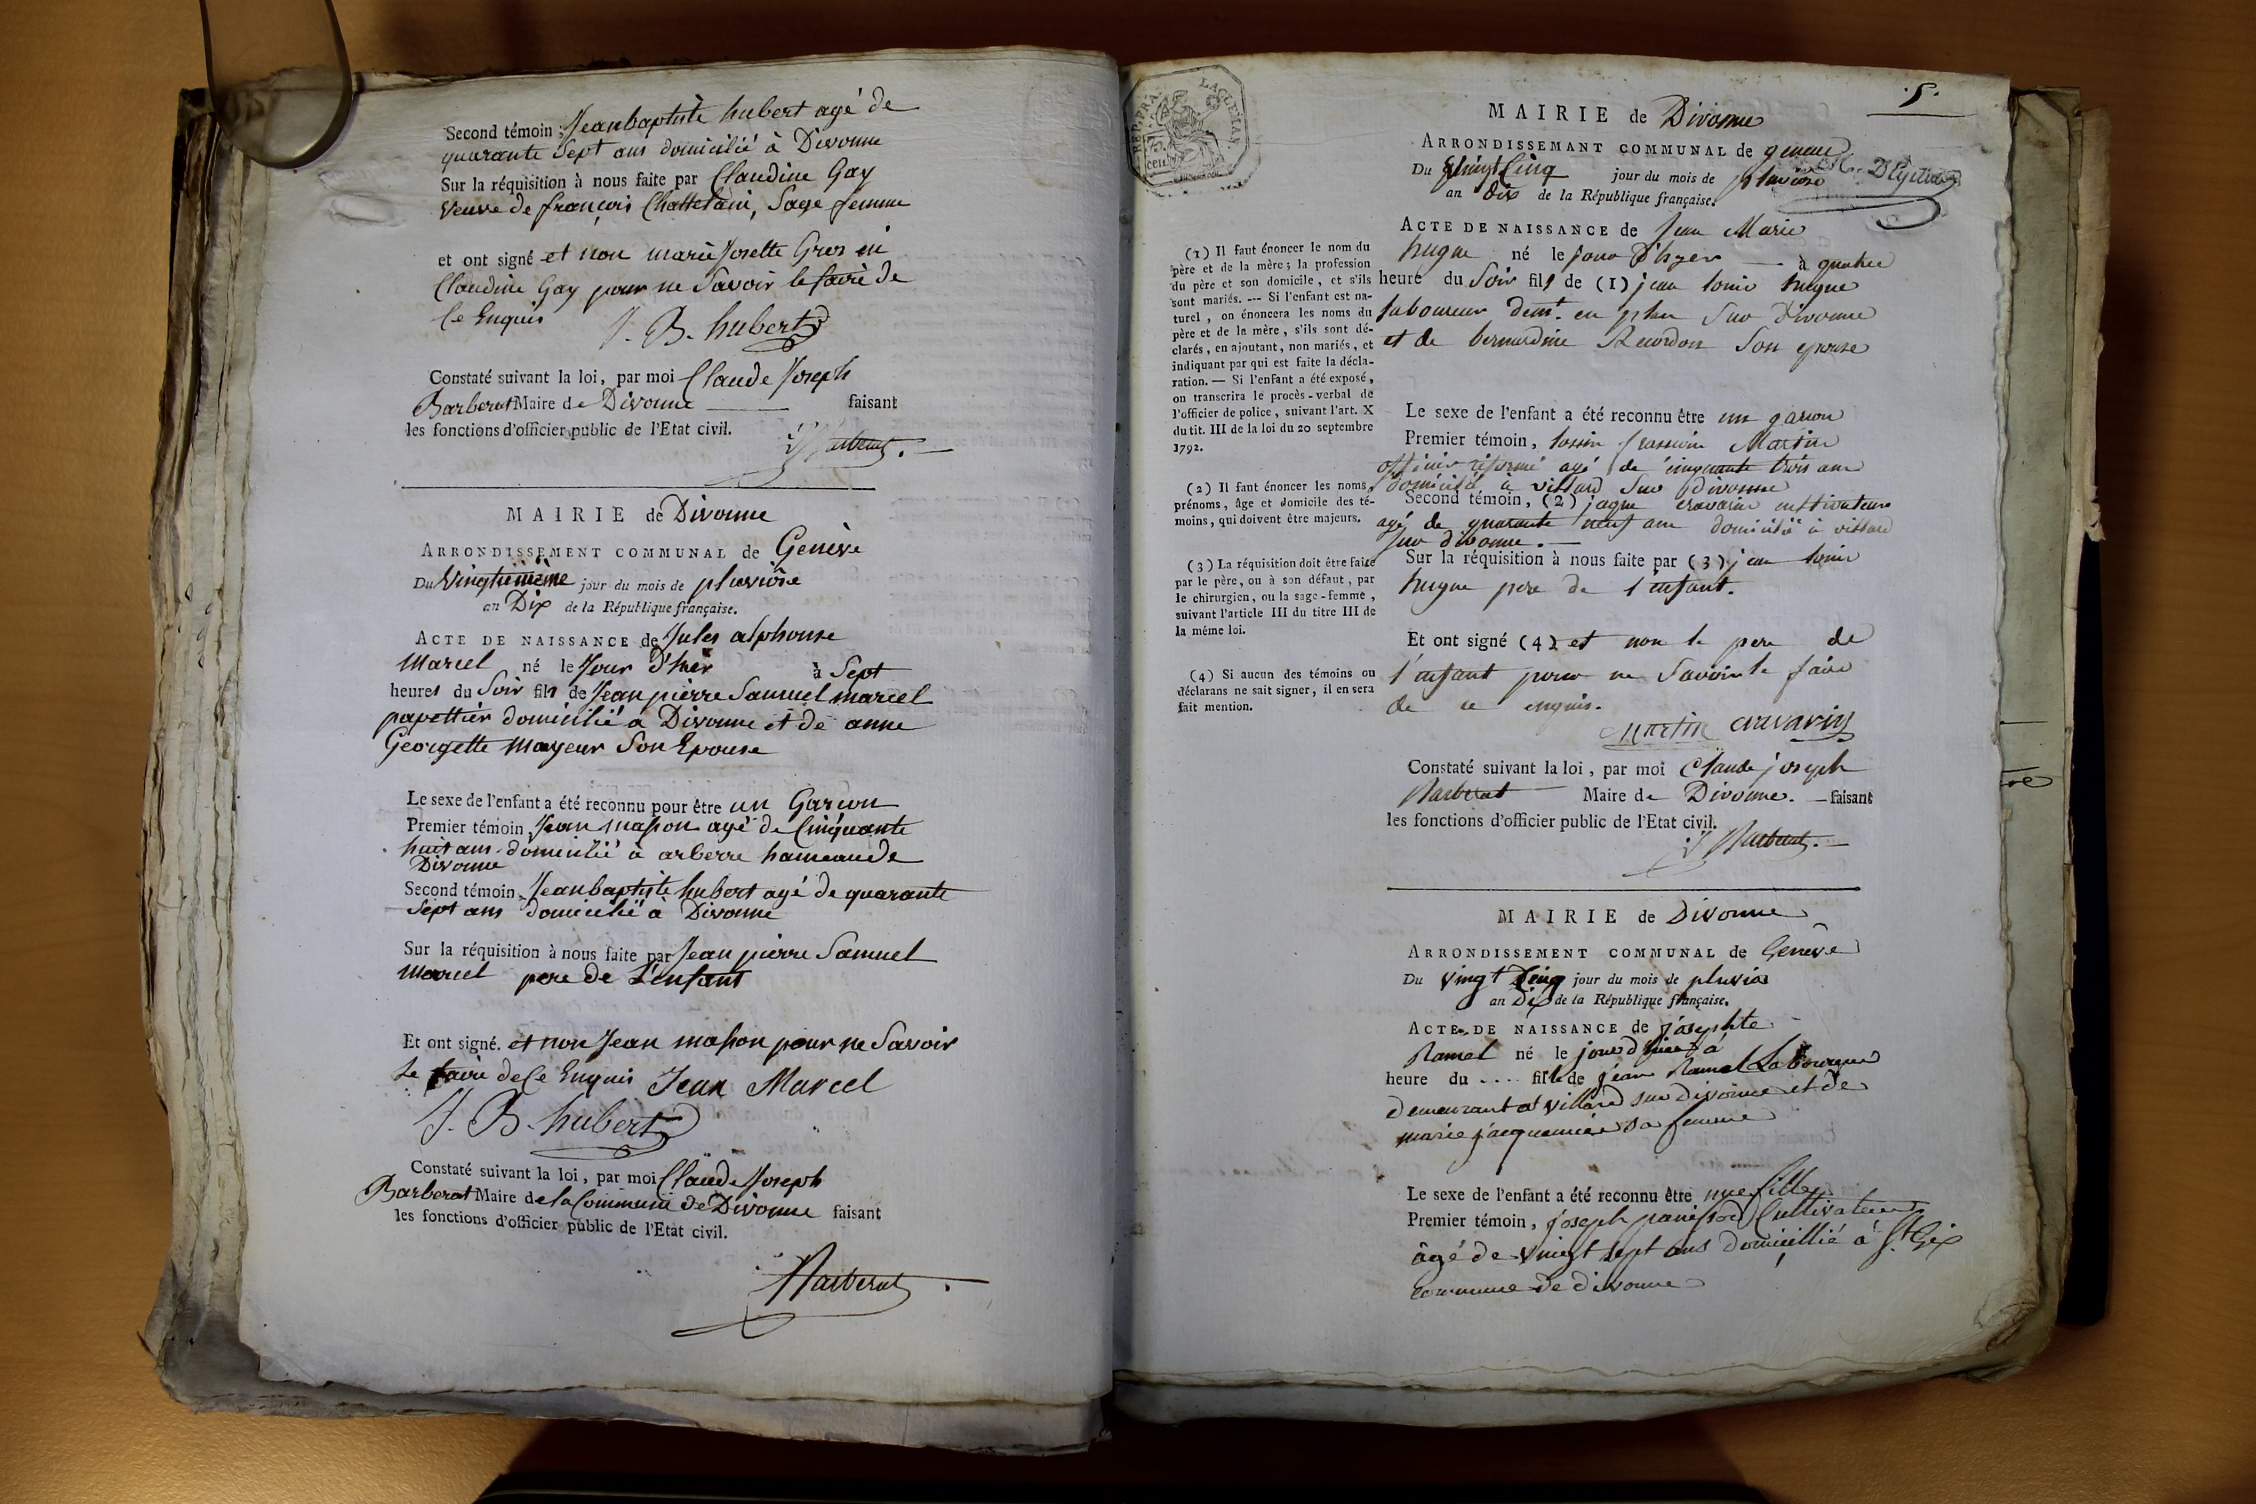 Second témoin, Jean baptiste hubert agé de
quarante Sept ans domicilié à Divonne
Sur la réquisition à nous faite par Claudine Gay
veuve de françois Chattelain, Sage femme
et ont signé et non marie Josette Gros ni
Claudine Gay pour ne Savoir le faire de
Ce Enquis
J. B. hubert
Constaté suivant la loi, par moi Claude Joseph
Barberat Maire de Divonne faisant
les fonctions d'officier public de l'Etat civil.
Barberat.
MAIRIE de Divonne
ARRONDISSEMENT COMMUNAL de Genève
Du jour du mois de pluviôse
an Dix de la République française.
ACTE DE NAISSANCE de Jules alphonse
Marcel né le Jour d'hier à Sept
heures du Soir fils de Jean pierre Samuel marcel
papettier domicilié a Divonne et de anne
Georgette Mayeur Son Epouse
Le sexe de l'enfant a été reconnu pour être un Garcon
Premier témoin, Jean masson agé de Cinquante
huit ans domicilié à arberre hameau de
Divonne
Second témoin, Jean baptiste hubert agé de quarante
Sept ans domicilié à Divonne
Sur la réquisition à nous faite par Jean pierre Samuel
Marcel pere de L'enfant
Et ont signé. et non Jean masson pour ne Savoir
le faire de Ce Enquis Jean Marcel
J. B. hubert
Constaté suivant la loi, par moi Claude Joseph
Barberat Maire de la Commune de Divonne faisant
les fonctions d'officier public de l'Etat civil.
Barberat.
5.
MAIRIE de Divonne
ARRONDISSEMANT COMMUNAL de geneve
Du Vingt Cinq jour du mois de pluviose
an dix de la République française.
ACTE DE NAISSANCE de Jean Marie
hugue né le jour d'hyer à quatre
heure du Soir fils de (1) jean louis hugue
laboureur demt. en plan Sur divonne
et de bernardine Recordon Son epouse
Le sexe de l'enfant a été reconnu être un garcon
Premier témoin, Martin
officier réformé agé de cinquante trois ans
domicilié a villard Sur divonne
Second témoin, (2) jaque cravarin cultivateur
agé de quarante neuf ans domicilié à villard
Sur divonne.
Sur la réquisition à nous faite par (3) jean louis
hugue pere de l'enfant.
Et ont signé (4) et non le pere de
l'enfant pour ne Savoir le faire
de ce enquis.
Martin cravarin
Constaté suivant la loi, par moi Claude joseph
Barberat Maire de Divonne. faisant
les fonctions d'officier public de l'Etat civil.
Barberat.
(1) Il faut énoncer le nom du
père et de la mère; la profession
du père et son domicile, et s'ils
sont mariés. --- Si l'enfant est na-
turel, on énoncera les noms du
père et de la mère, s'ils sont dé-
clarés, en ajoutant, non mariés, et
indiquant par qui est faite la décla-
ration. — Si l'enfant a été exposé,
on transcrira le procès-verbal de
l'officier de police, suivant l'art. X
du tit. III de la loi du 20 septembre
1792.
(2) Il faut énoncer les noms,
prénoms, âge et domicile des té-
moins, qui doivent être majeurs.
(3) La réquisition doit être faite
par le père, ou à son défaut, par
le chirurgien, ou la sage-femme,
suivant l'article III du titre III de
la même loi.
(4) Si aucun des témoins ou
déclarans ne sait signer, il en sera
fait mention.
MAIRIE de Divonne
ARRONDISSEMENT COMMUNAL de Genève
Du vingt Cinq jour du mois de pluvios
an Dix de la République française.
ACTE DE NAISSANCE de josephte
Ramel né le jour d'hier à
heure du .... fille de jean Ramel Laboureur
demeurant a villard sur divonne et de
marie sa femme
Le sexe de l'enfant a été reconnu être une fille
Premier témoin, joseph panissod Cultivateur
âgé de vingt sept ans domicillié à St. Gix
commune de divonne